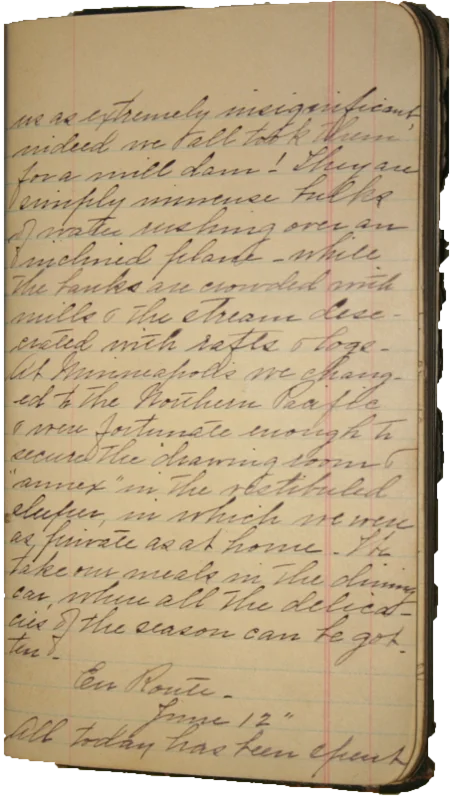 us as extremely insignificant,
indeed we all took them
for a mill dam! They are
simply immense bulks
of water rushing over an
inclined plane - while
the banks are crowded with
mills & the stream dese-
crated with rafts & logs -
At Minneapolis we chang-
ed to the Northern Pacific
& were fortunate enough to
secure the drawing room &
"annex" in the vestibuled
sleeper, in which we were
as private as at home - We
take our meals in the dining
car, where all the delica-
cies of the season can be got-
ten -
En Route -
June 12"
All today has been spent